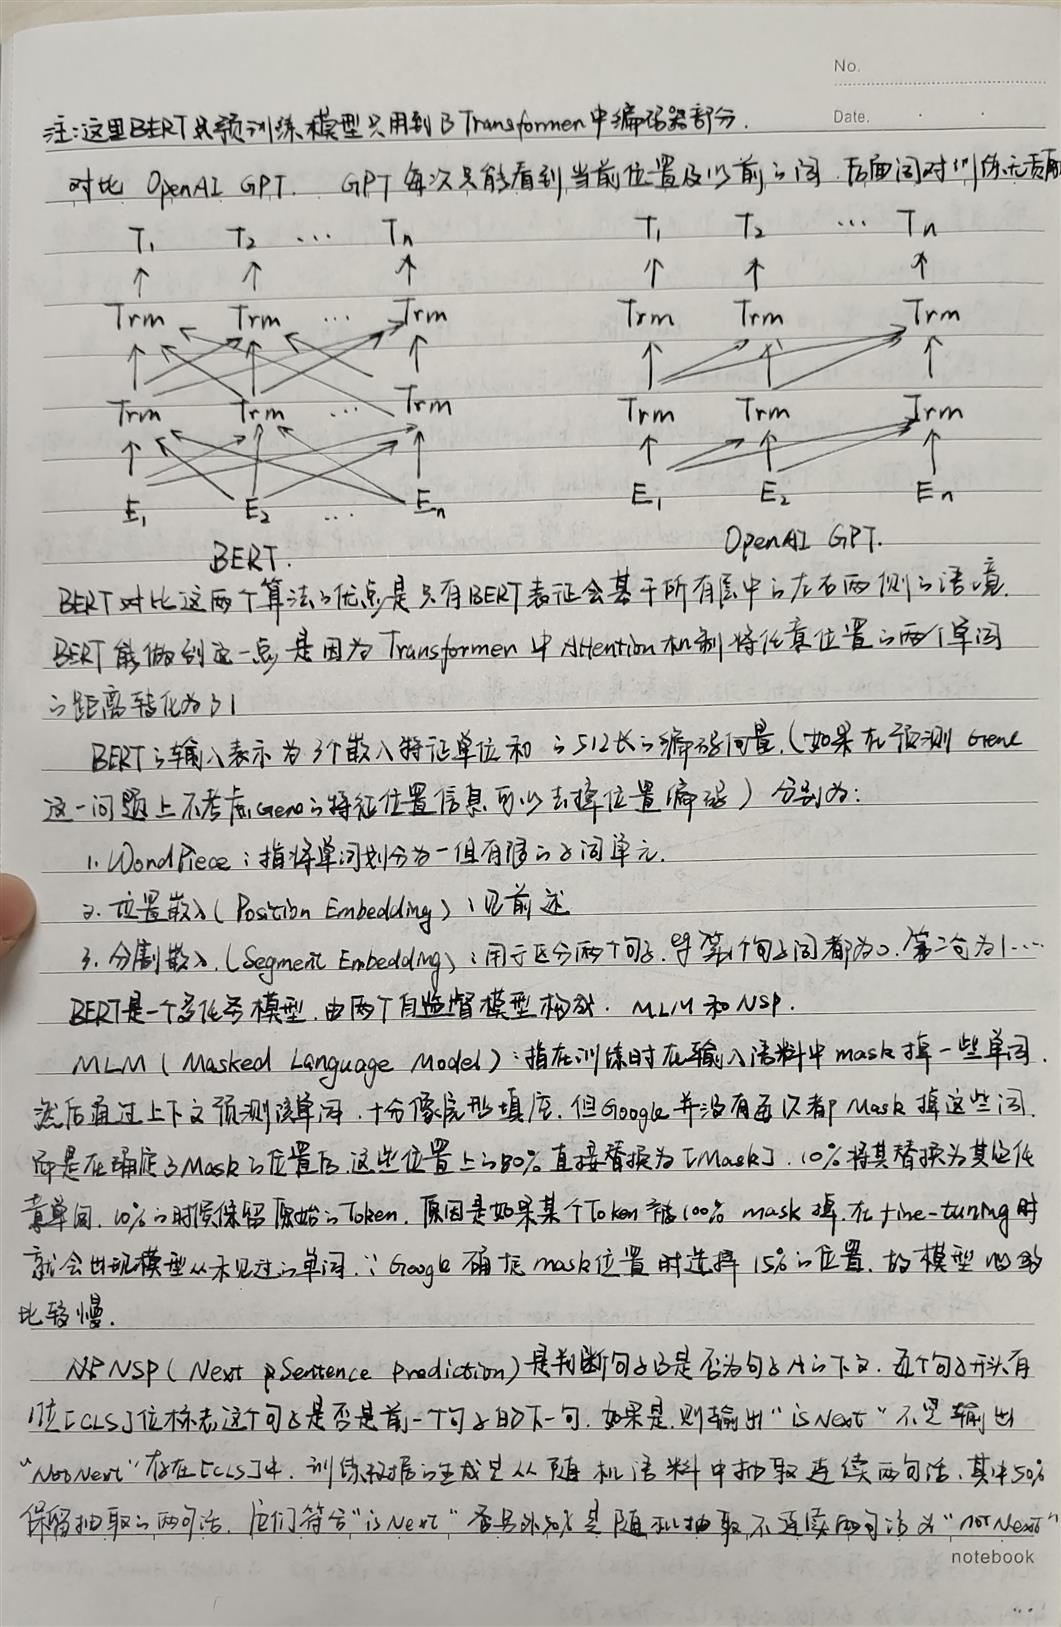 No.
Date.
注:这里BERT预训练模型只用到了Transformer中编码器部分.
对比 OpenAI GPT. GPT每次只能看到当前位置及以前的词 后面词对训练无贡献
T1 T2 ... Tn T1 T2 ... Tn
Trm Trm ... Trm Trm Trm Trm
Trm Trm ... Trm Trm Trm Trm
E1 E2 ... En E1 E2 En
BERT. OpenAI GPT.
BERT对比这两个算法的优点是只有BERT表征会基于所有层中的左右两侧的语境.
BERT能做到这一点是因为Transformer中Attention机制将任意位置的两个单词
的距离转化为了1
BERT的输入表示为3个嵌入特征单位和的512长的编码向量.(如果在预测Gene
这一问题上不考虑Gene的特征位置信息可以去掉位置编码)分别为:
1. WordPiece:指将单词划分为一组有限的子词单元.
2. 位置嵌入(Position Embedding):见前述
3. 分割嵌入.(Segment Embedding):用于区分两个句子.eg第1个句子词都为0.第二句为1....
BERT是一个多任务模型.由两个自监督模型构成. MLM和NSP.
MLM(Masked Language Model):指在训练时在输入语料中mask掉一些单词.
然后通过上下文预测该单词.十分像完形填空.但Google并没有每次都Mask掉这些词.
而是在确定了Mask的位置后.这些位置上的80%直接替换为[Mask].10%将其替换为其它任
意单词.10%的时候保留原始的Token.原因是如果某个Token 100% mask掉.在fine-tuning时
就会出现模型从未见过的单词.∵Google确定mask位置时选择15%的位置.故模型收敛
比较慢.
NSP(Next Sentence Prediction)是判断句子B是否为句子A的下文.每个句子开头有
1位[CLS]位标志这个句子是否是前一个句子的下一句.如果是.则输出"isNext"不是输出
"NotNext"存在[CLS]中.训练数据的生成是从随机语料中抽取连续两句话.其中50%
保留抽取的两句话.它们符合"isNext" 另外50%是随机抽取不连续两句话为"notNext"
notebook